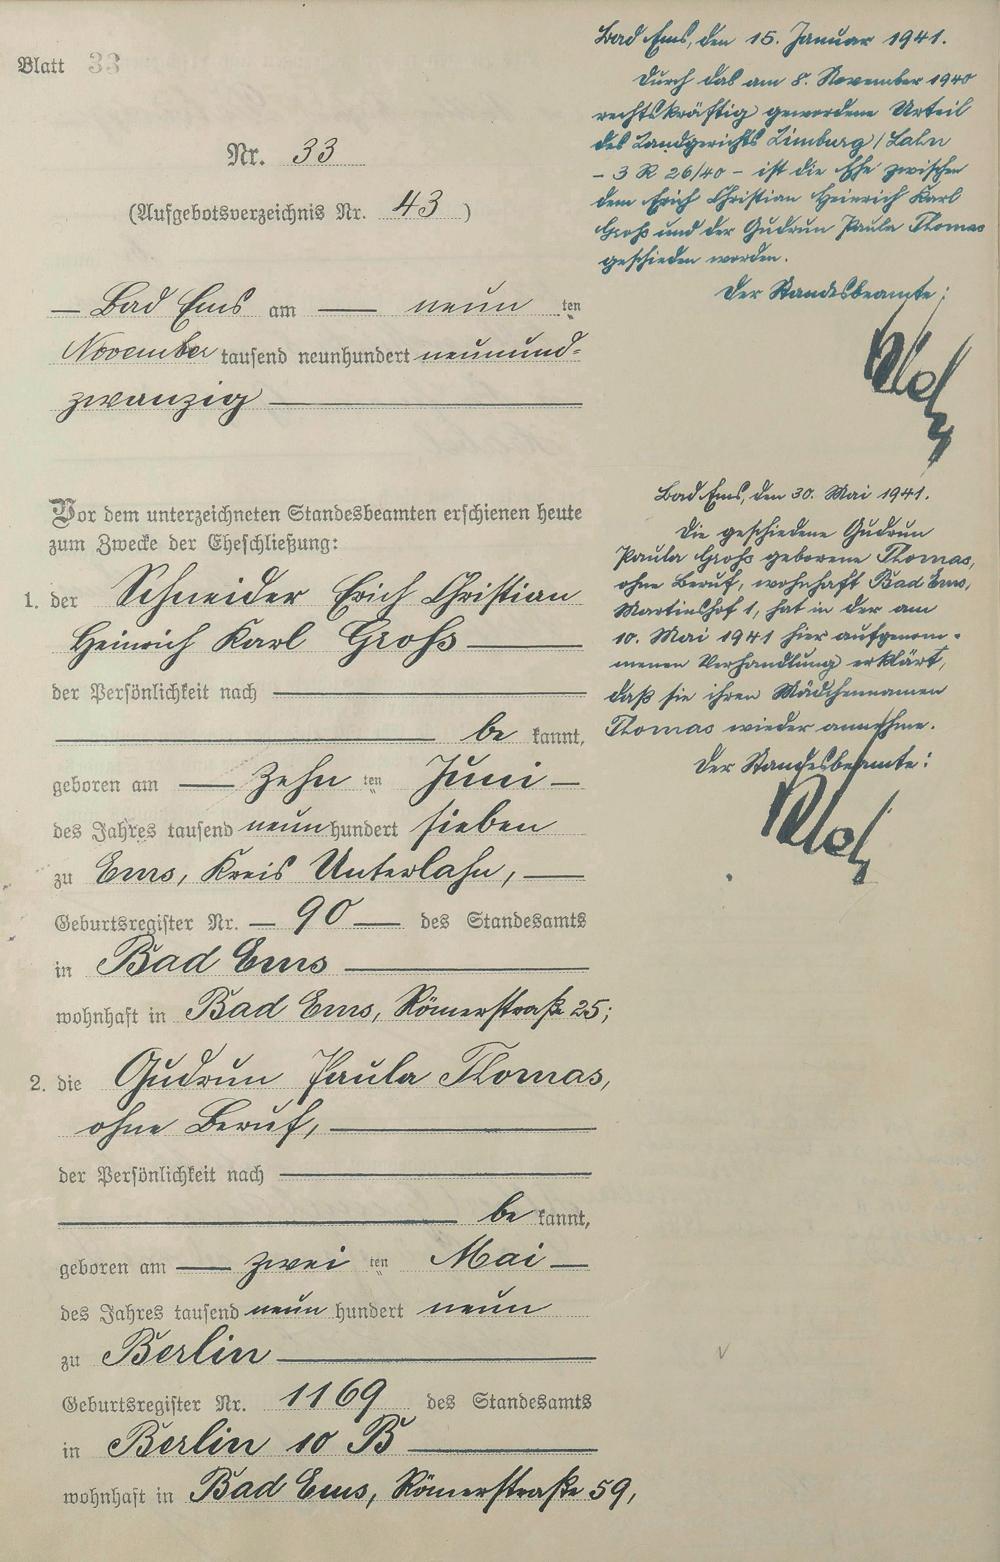 Blatt 33
Nr. 33
(Aufgebotsverzeichnis Nr. 43)
— Bad Ems am — neun ten
November tausend neunhundert neunund=
zwanzig —
Vor dem unterzeichneten Standesbeamten erschienen heute
zum Zwecke der Eheschließung:
1. der Schneider Erich Christian
Heinrich Karl Groß —
der Persönlichkeit nach —
— be kannt,
geboren am — zehn ten Juni —
des Jahres tausend neun hundert sieben
zu Ems, Kreis Unterlahn, —
Geburtsregister Nr. — 90 — des Standesamts
in Bad Ems —
wohnhaft in Bad Ems, Römerstraße 25;
2. die Gudrun Paula Thomas,
ohne Beruf, —
der Persönlichkeit nach —
— be kannt,
geboren am — zwei ten Mai —
des Jahres tausend neun hundert neun
zu Berlin —
Geburtsregister Nr. 1169 des Standesamts
in Berlin 10 B —
wohnhaft in Bad Ems, Römerstraße 59,
Bad Ems, den 15. Januar 1941.
Durch das am 8. November 1940
rechtskräftig gewordene Urteil
des Landgerichts Limburg / Lahn
– 3 R 26/40 – ist die Ehe zwischen
dem Erich Christian Heinrich Karl
Groß und der Gudrun Paula Thomas
geschieden worden.
Der Standesbeamte:
Bad Ems, den 30. Mai 1941.
Die geschiedene Gudrun
Paula Groß geborene Thomas,
ohne Beruf, wohnhaft Bad Ems,
Martinshof 1, hat in der am
10. Mai 1941 hier aufgenom-
menen Verhandlung erklärt,
daß sie ihren Mädchennamen
Thomas wieder annehme.
Der Standesbeamte: